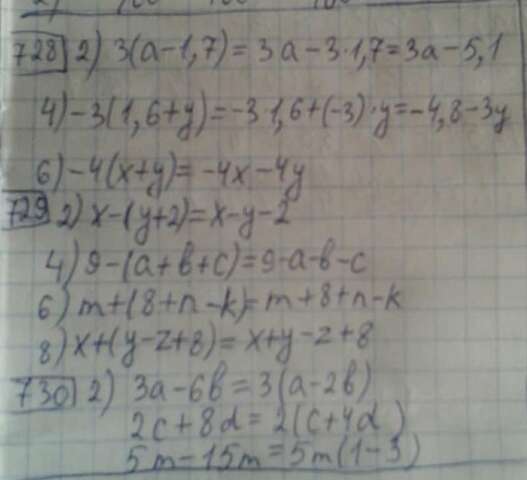 728 2) 3(a-1,7)=3a-3·1,7=3a-5,1
4)-3(1,6+y)=-3·1,6+(-3)·y=-4,8-3y
6)-4(x+y)=-4x-4y
729 2) x-(y+2)=x-y-2
4) 9-(a+b+c)=9-a-b-c
6) m+(8+n-k)=m+8+n-k
8) x+(y-z+8)=x+y-z+8
730 2) 3a-6b=3(a-2b)
2c+8d=2(c+4d)
5m-15m=5m(1-3)